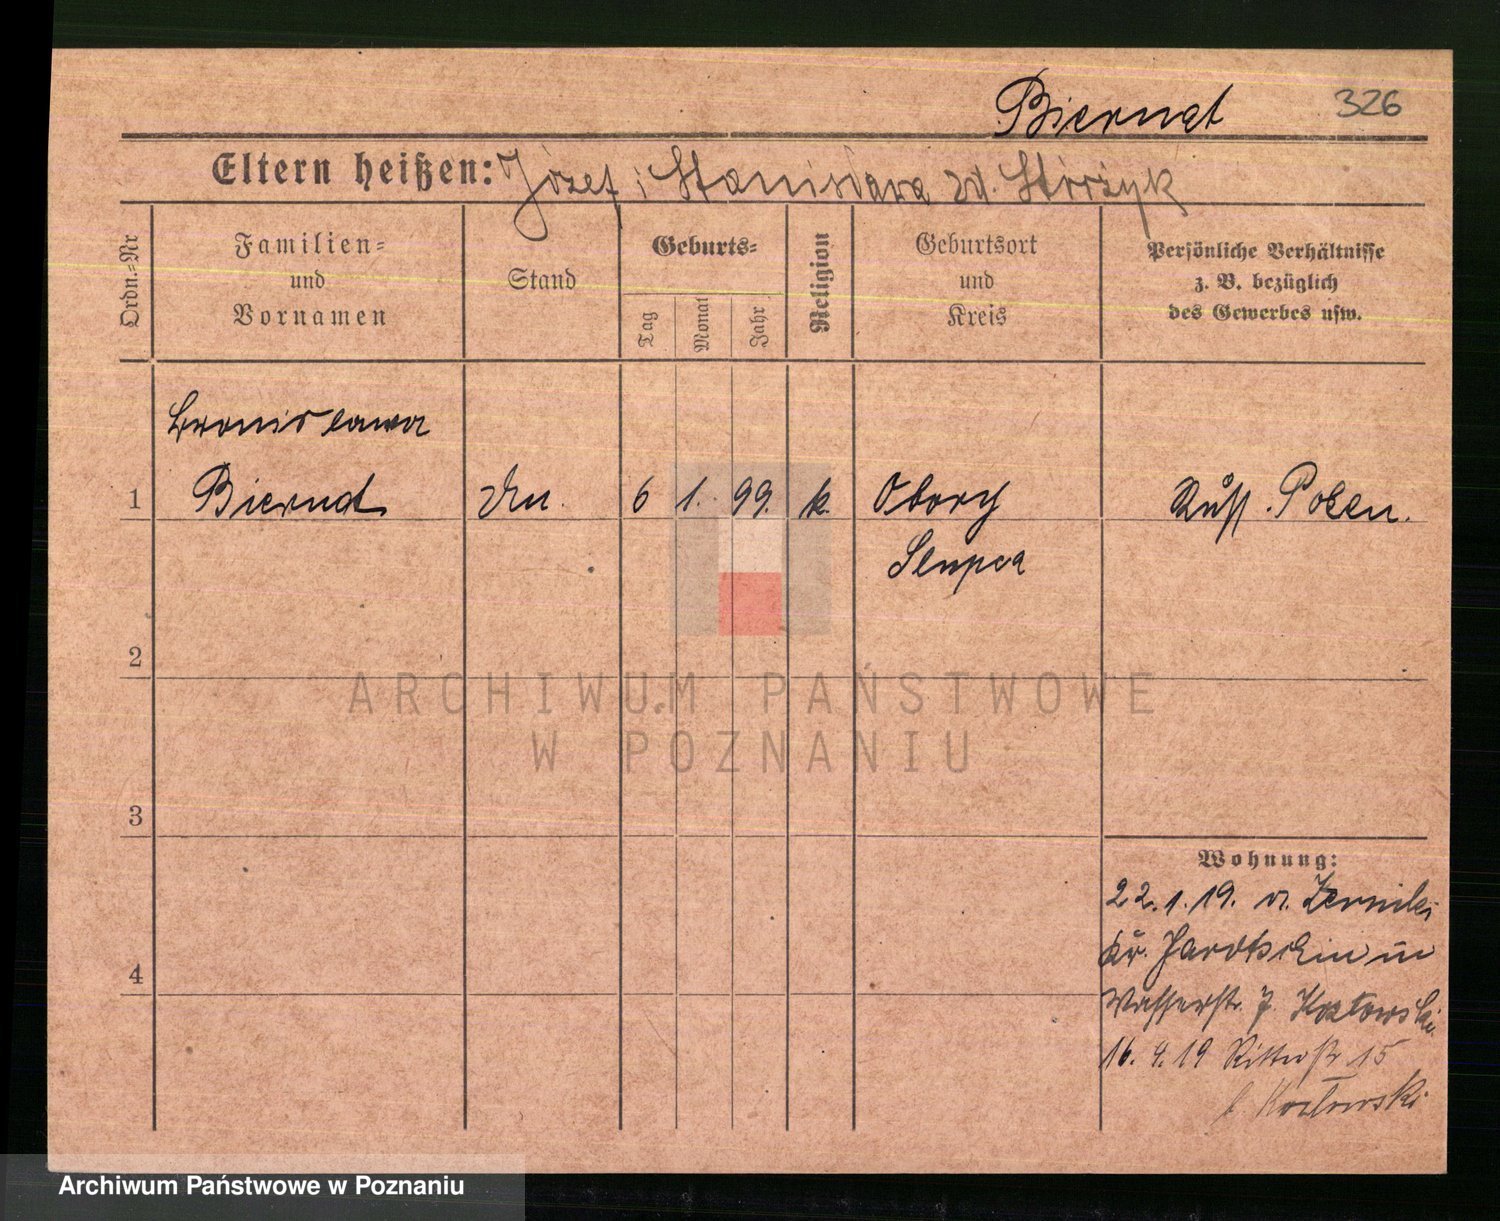 Biernat 326
Eltern heißen: Józef i Stanisława zd. Stróżyk
Ordn.=Nr
Familien=
und
Vornamen
Stand
Geburts=
Tag
Monat
Jahr
Religion
Geburtsort
und
Kreis
Persönliche Verhältnisse
z. B. bezüglich
des Gewerbes usw.
Bronislawa
1 Biernat 6 1. 99. k. Russ. Polen.
Slupca
2
3
4
Wohnung:
22.1.19. v. Zerniki
Kr. Jarotschin in
Wasserstr. 7. Kozlowski
16. 9. 19 Ritterstr 15
b Kozłowski
ARCHIWUM PAŃSTWOWE
W POZNANIU
Archiwum Państwowe w Poznaniu